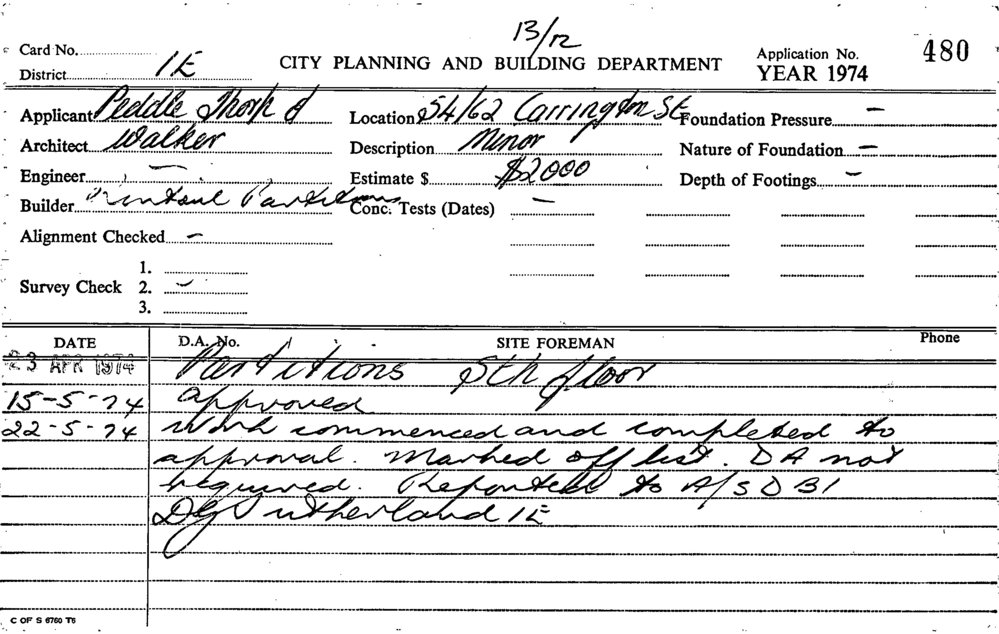 13/12
Card No.
District 1E
CITY PLANNING AND BUILDING DEPARTMENT
Application No. 480
YEAR 1974
Applicant Peddle Thorp &
Location 54/62 Carrington St
Foundation Pressure —
Architect Walker
Description Minor
Nature of Foundation —
Engineer —
Estimate $ $2000
Depth of Footings —
Builder Rintoul Partitions
Conc. Tests (Dates) —
Alignment Checked —
1.
Survey Check 2. —
3.
DATE D.A. No. SITE FOREMAN Phone
23 APR 1974 Partitions 5th floor
15-5-74 approved
22-5-74 Work commenced and completed to
approval. Marked off list. DA not
required. Reported to A/SDBI
DG Sutherland 1E
C OF S 6760 T6